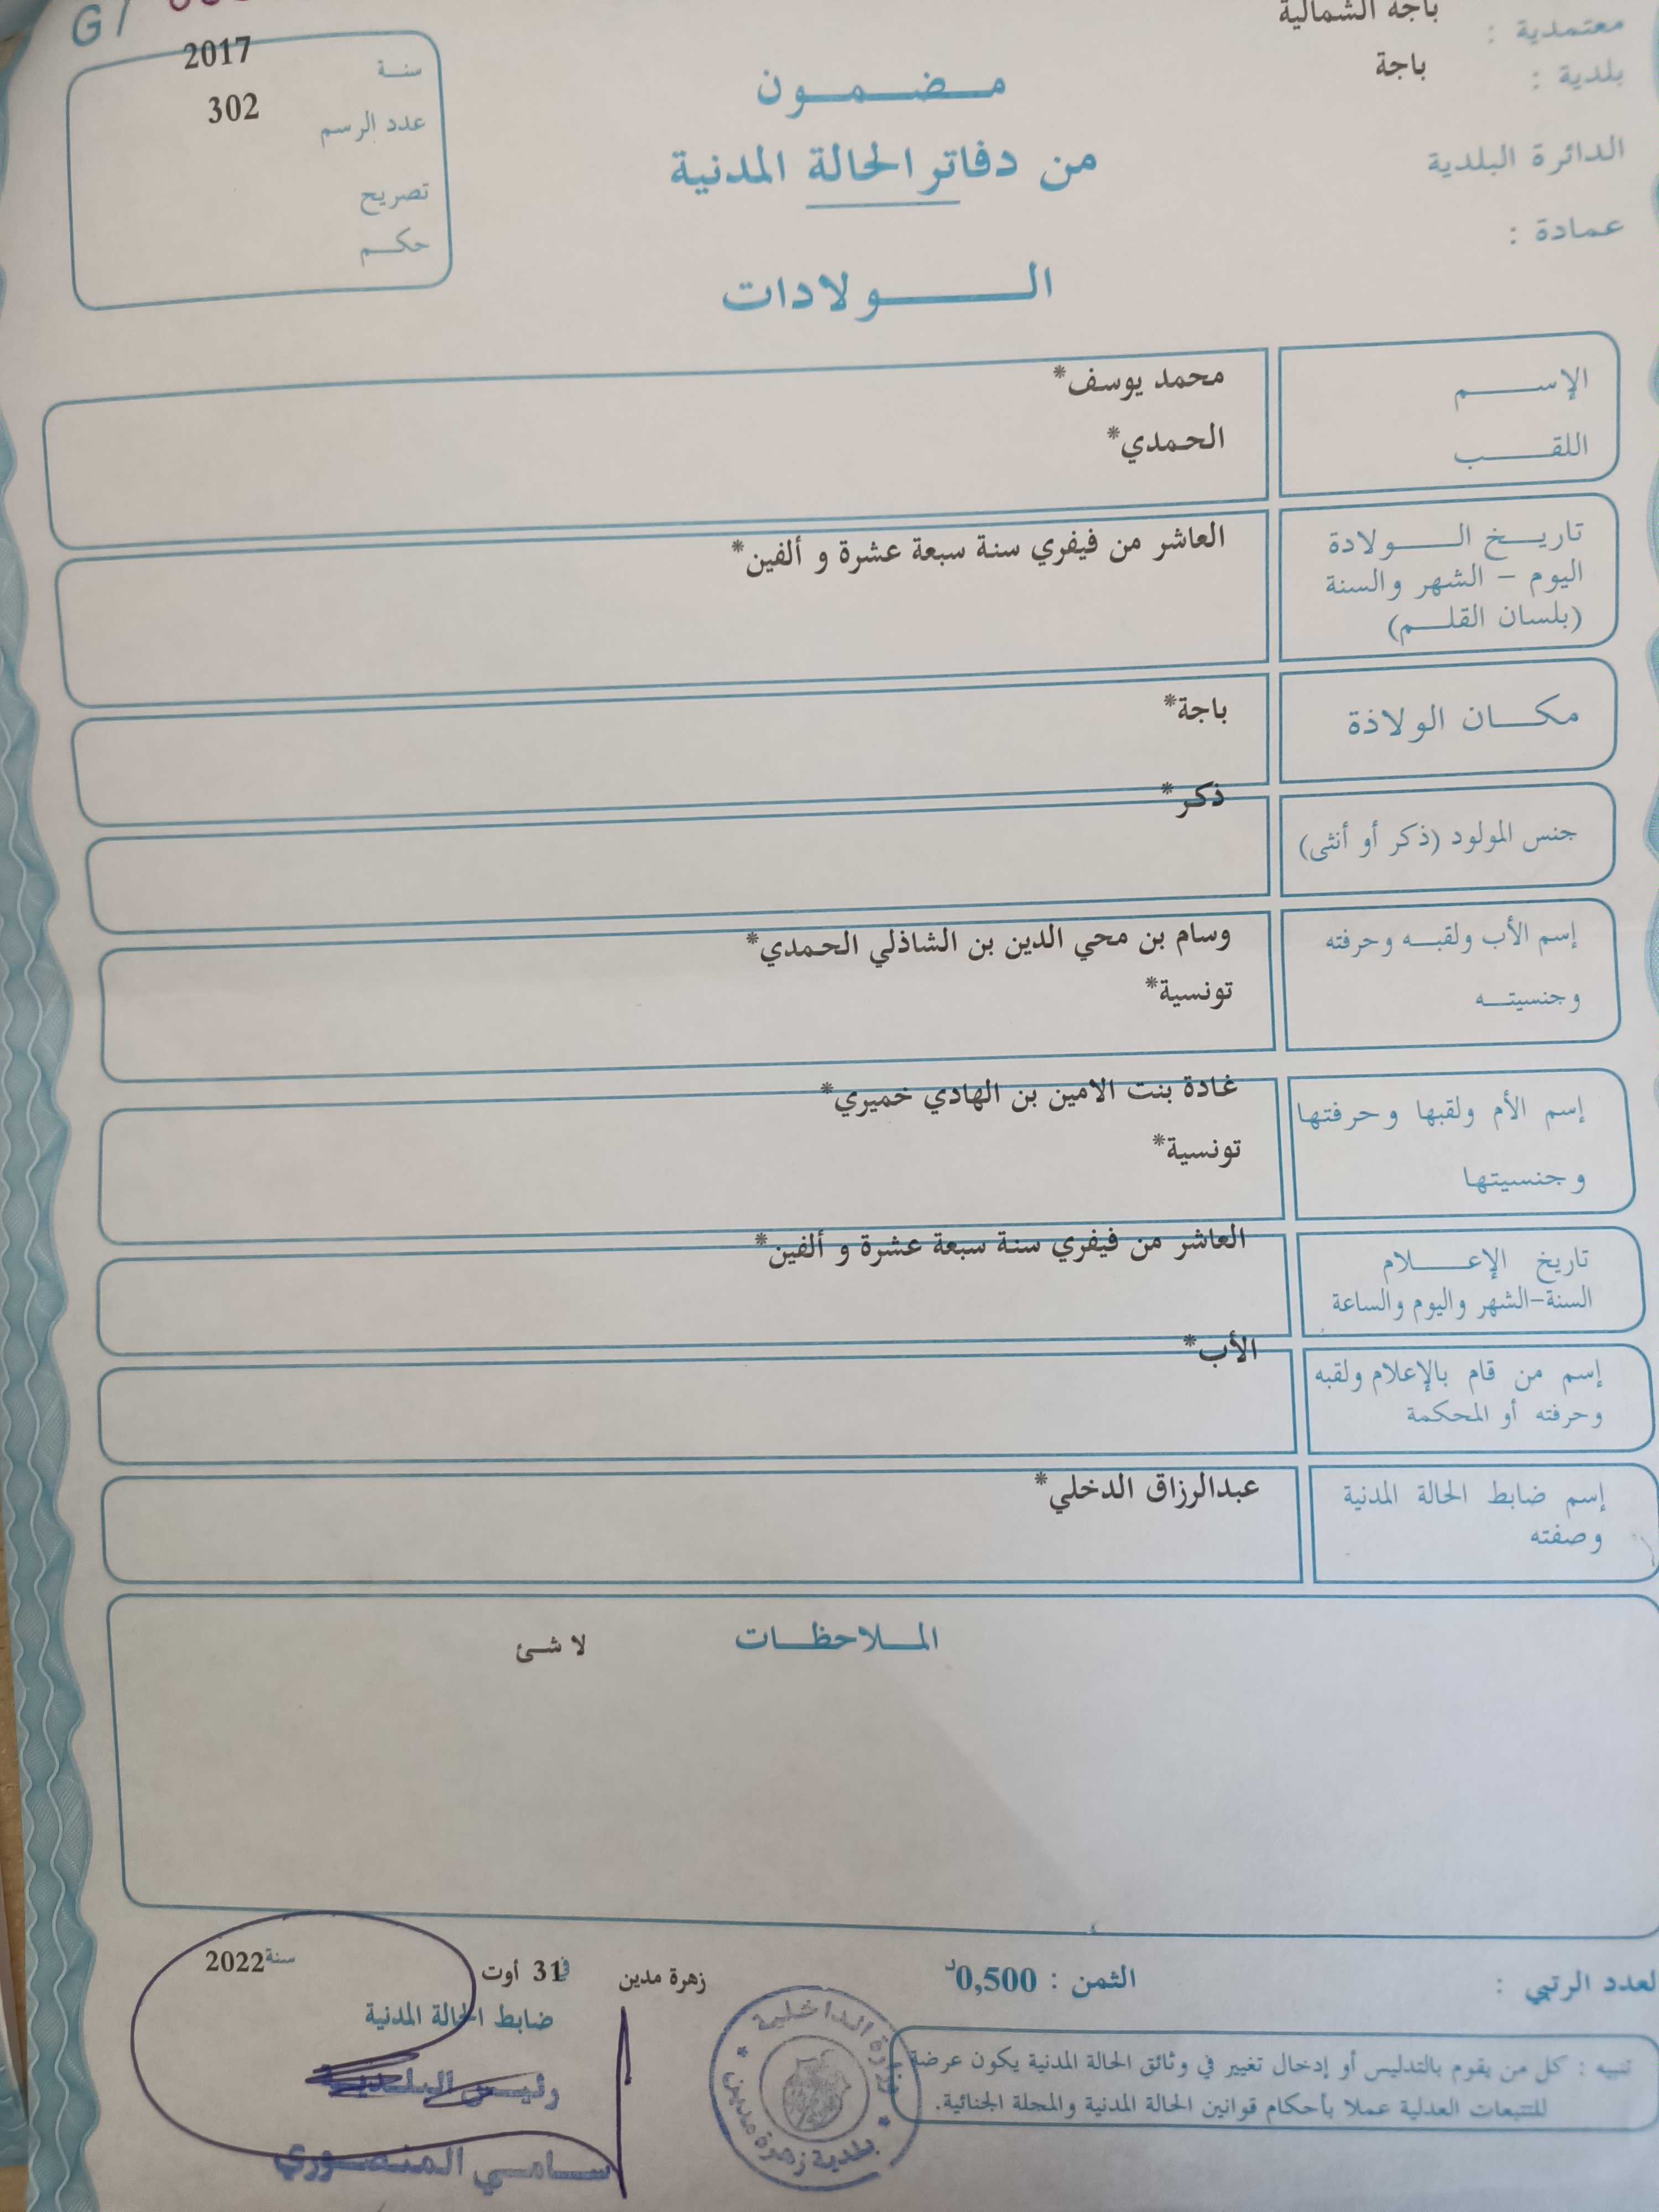 معتمدية : باجة الشمالية
بلدية : باجة
الدائرة البلدية
عمادة :
مضمون
من دفاتر الحالة المدنية
الولادات
G1
سنة 2017
عدد الرسم 302
تصريح
حكم
الإسم محمد يوسف*
اللقب الحمدي*
تاريخ الولادة العاشر من فيفري سنة سبعة عشرة و ألفين*
اليوم - الشهر والسنة
(بلسان القلم)
مكان الولادة باجة*
جنس المولود (ذكر أو أنثى) ذكر*
إسم الأب ولقبه وحرفته وسام بن محي الدين بن الشاذلي الحمدي*
وجنسيته تونسية*
إسم الأم ولقبها وحرفتها غادة بنت الامين بن الهادي خميري*
وجنسيتها تونسية*
تاريخ الإعلام العاشر من فيفري سنة سبعة عشرة و ألفين*
السنة-الشهر واليوم والساعة
إسم من قام بالإعلام ولقبه الأب*
وحرفته أو المحكمة
إسم ضابط الحالة المدنية عبدالرزاق الدخلي*
وصفته
الملاحظات لا شئ
لعدد الرتبي : الثمن : 0,500د
زهرة مدين في 31 أوت سنة 2022
ضابط الحالة المدنية
رئيس البلدية
سامي المنصوري
وزارة الداخلية
بلدية زهرة مدين
تنبيه : كل من يقوم بالتدليس أو إدخال تغيير في وثائق الحالة المدنية يكون عرضة
للتتبعات العدلية عملا بأحكام قوانين الحالة المدنية والمجلة الجنائية.